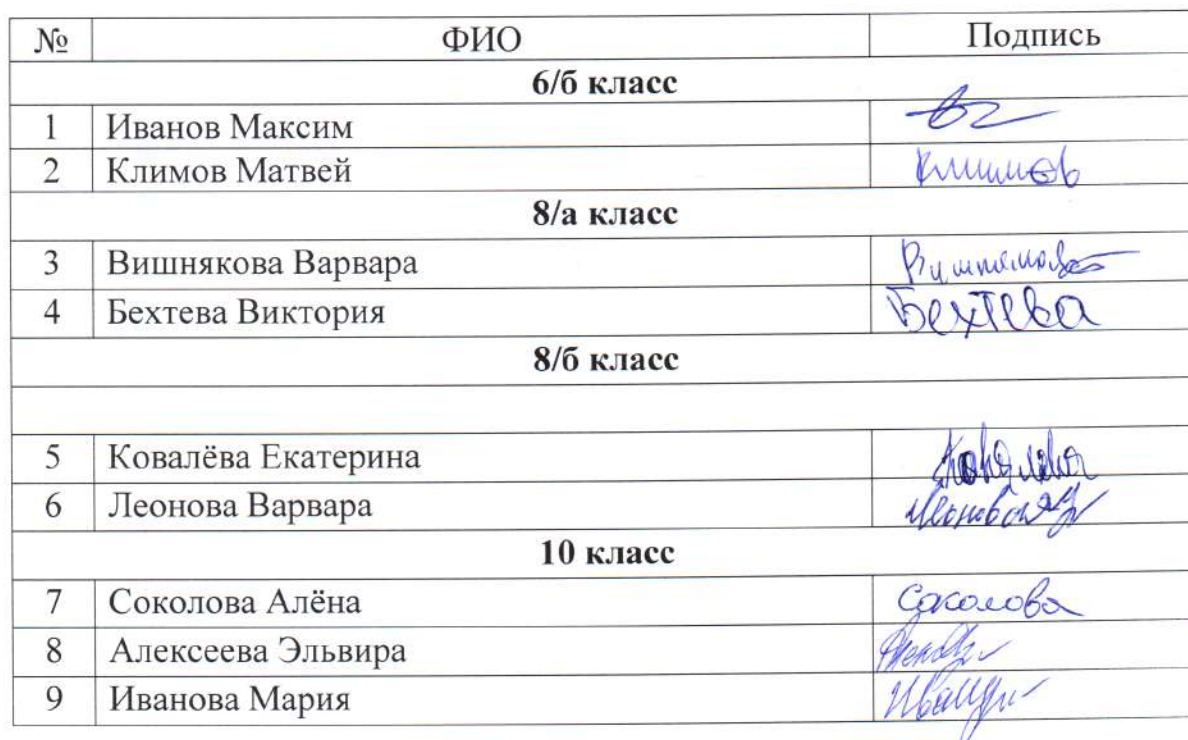 № ФИО Подпись
6/б класс
1 Иванов Максим
2 Климов Матвей Климов
8/а класс
3 Вишнякова Варвара Вишнякова
4 Бехтева Виктория Бехтева
8/б класс
5 Ковалёва Екатерина Ковалева
6 Леонова Варвара
10 класс
7 Соколова Алёна Соколова
8 Алексеева Эльвира
9 Иванова Мария